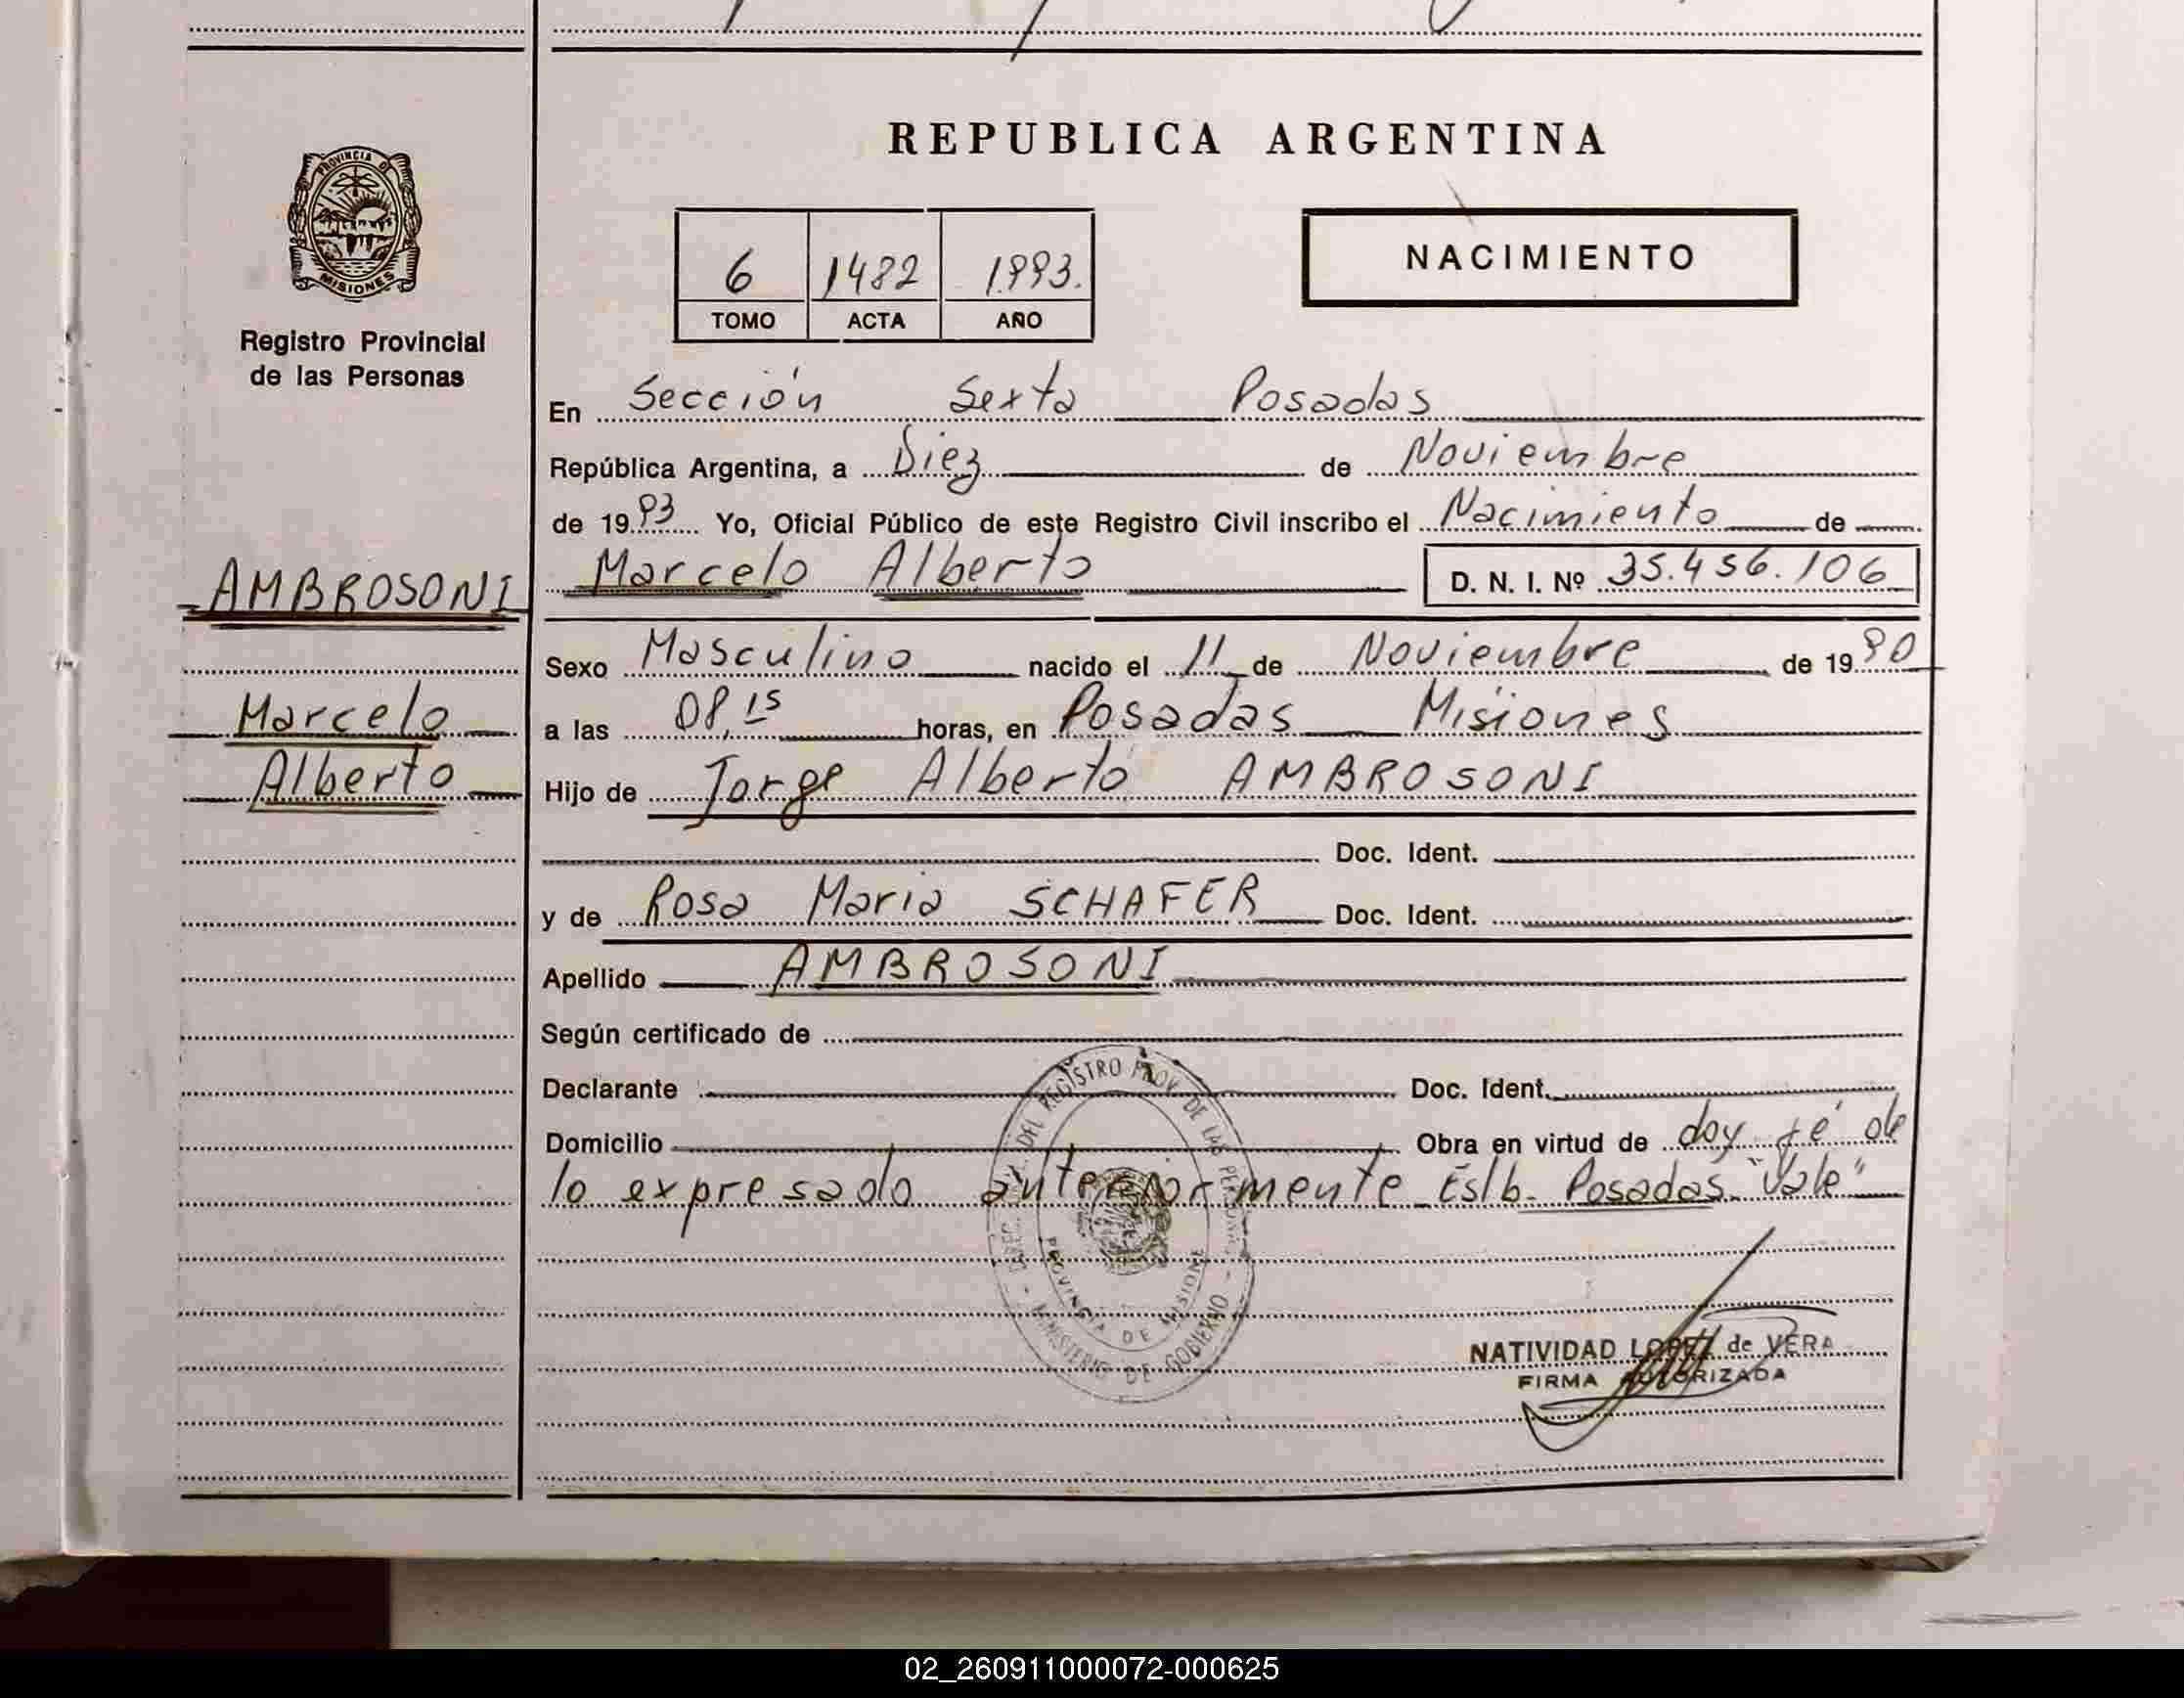 REPUBLICA ARGENTINA
PROVINCIA DE
MISIONES
Registro Provincial
de las Personas
6 1482 1993.
TOMO ACTA AÑO
NACIMIENTO
En Sección Sexta Posadas
República Argentina, a Diez de Noviembre
de 1993 Yo, Oficial Público de este Registro Civil inscribo el Nacimiento de
AMBROSONI
Marcelo Alberto D. N. I. Nº 35.456.106
Sexo Masculino nacido el 11 de Noviembre de 1990
Marcelo
a las 08,15 horas, en Posadas Misiones
Alberto
Hijo de Jorge Alberto AMBROSONI
Doc. Ident.
y de Rosa Maria SCHAFER Doc. Ident.
Apellido AMBROSONI
Según certificado de
Declarante Doc. Ident.
Domicilio Obra en virtud de doy fé de
lo expresado anteriormente Eslb. Posadas "Vale"
DEL REGISTRO PROV. DE LAS PERSONAS
MINISTERIO DE GOBIERNO
PROVINCIA DE MISIONES
NATIVIDAD LOPEZ de VERA
FIRMA AUTORIZADA
02_260911000072-000625